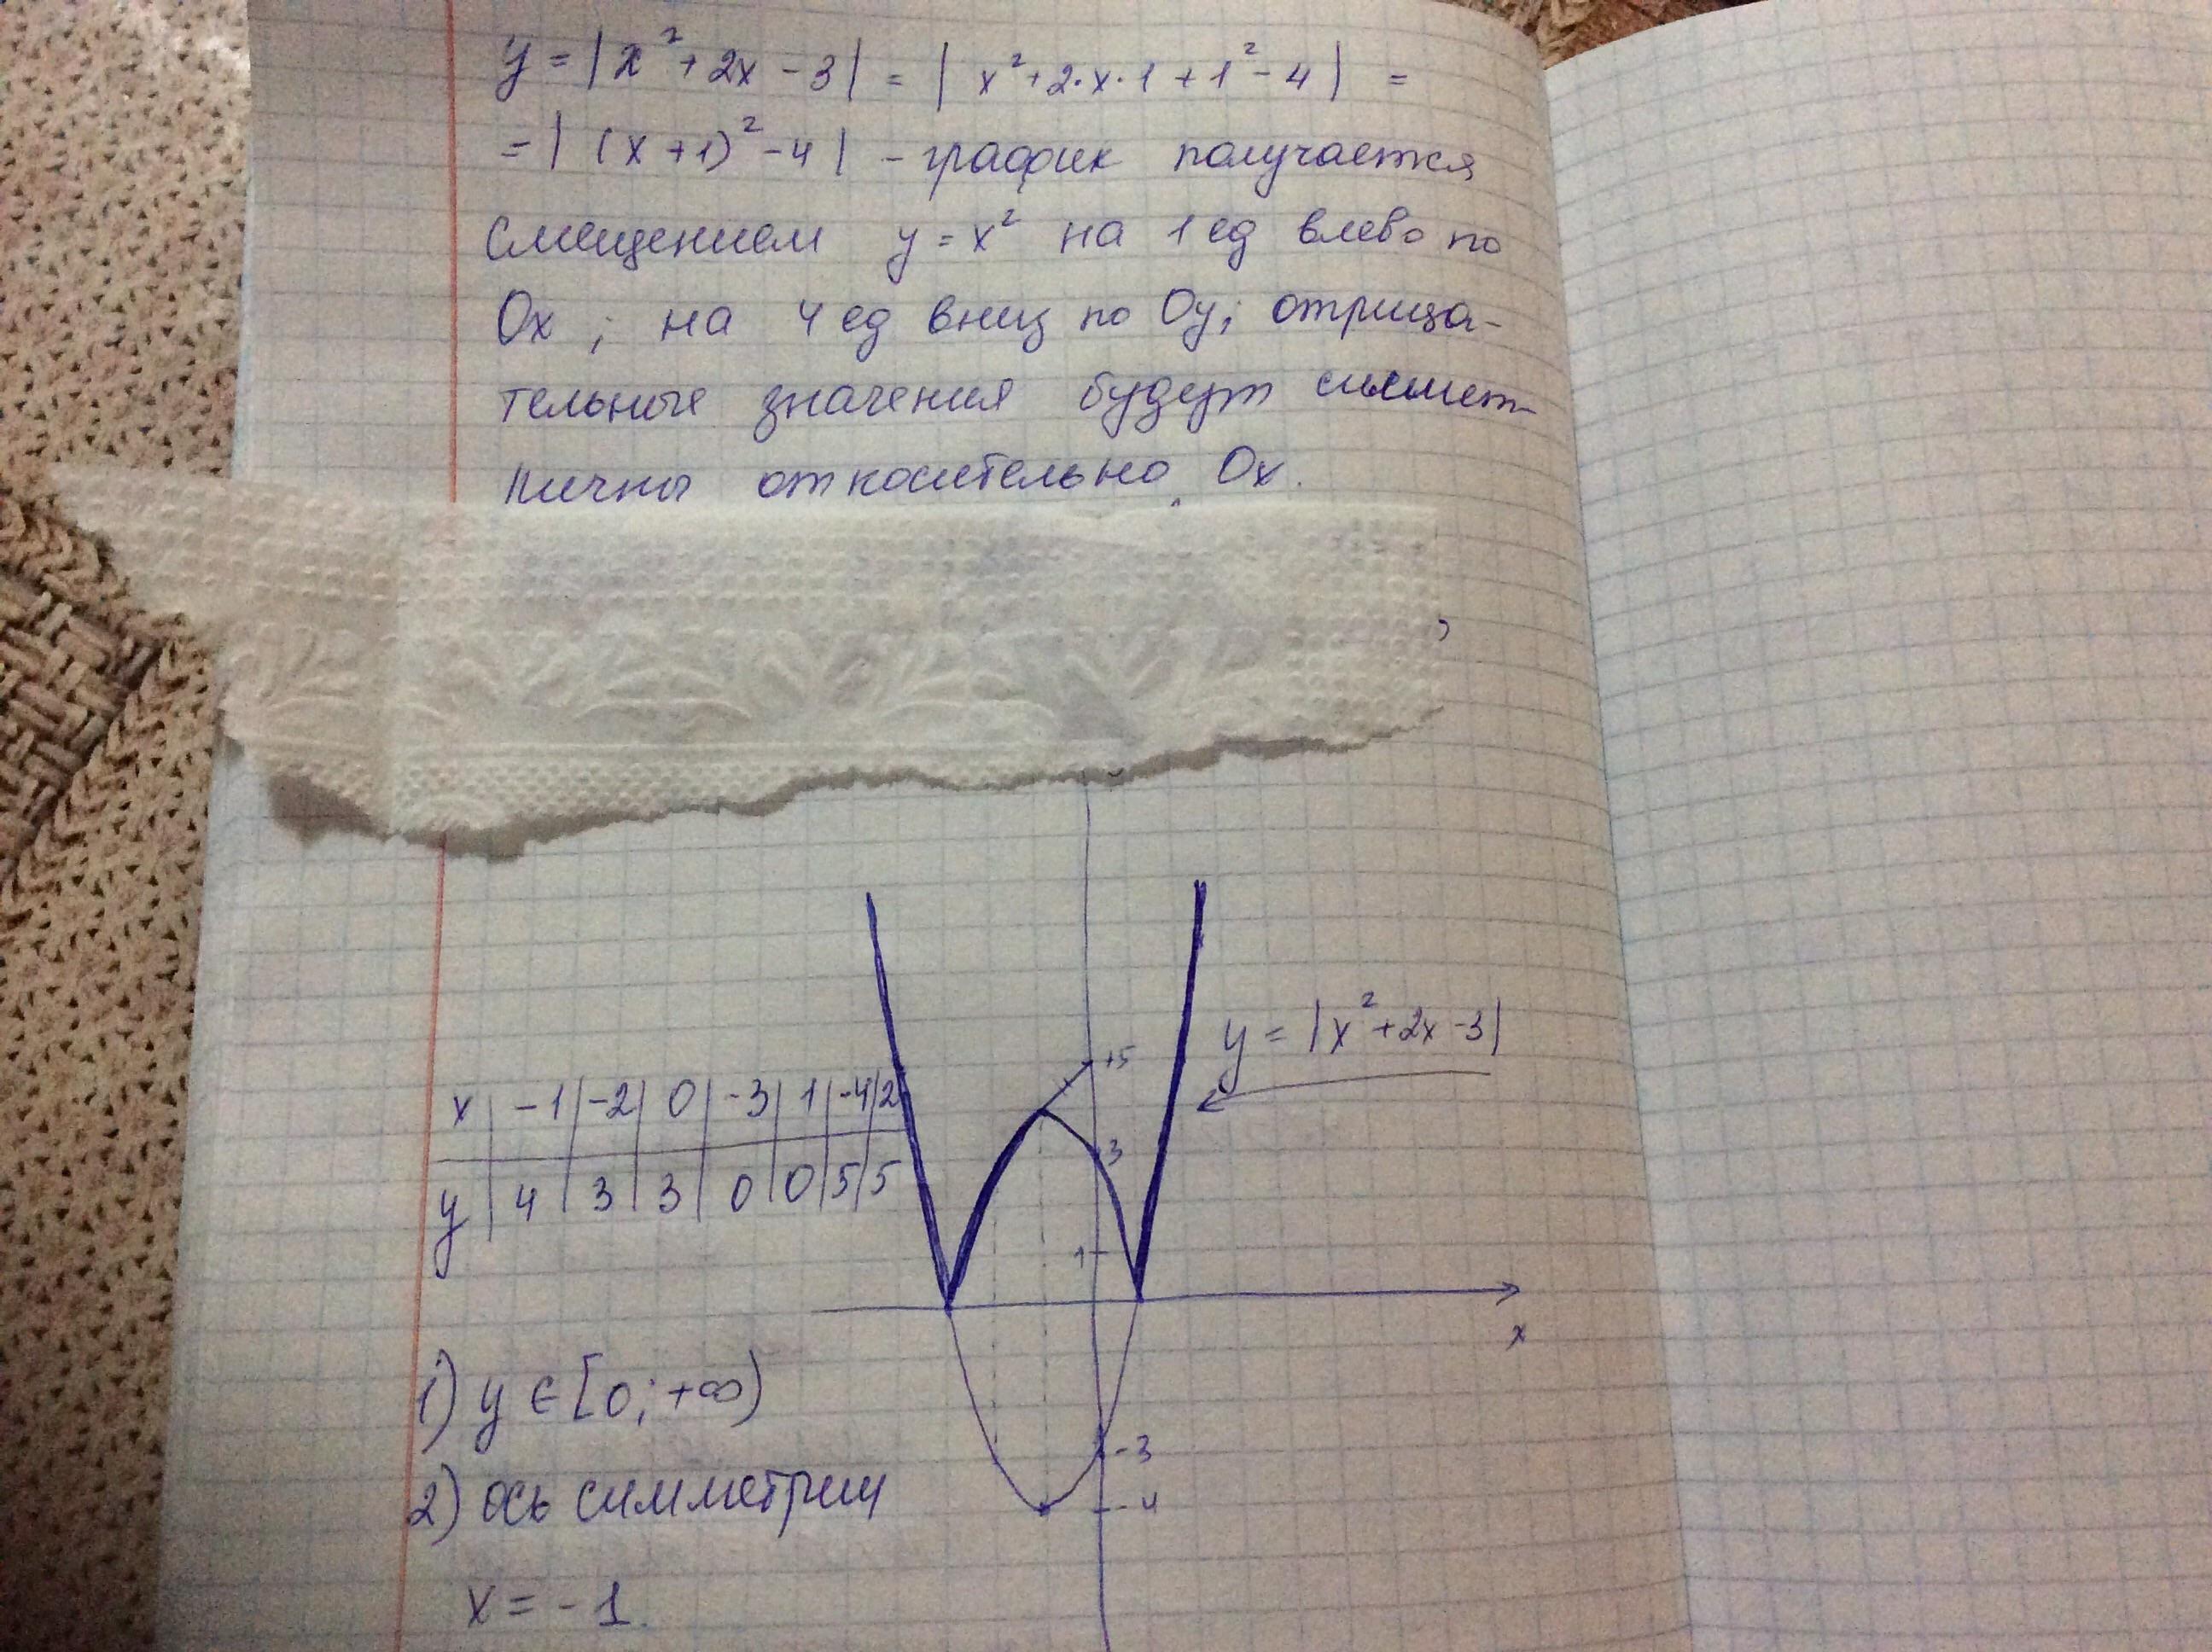 y = |x² + 2x - 3| = | x² + 2·x·1 + 1² - 4 | =
= | (x + 1)² - 4 | - график получается
смещением y = x² на 1 ед влево по
Ox ; на 4 ед вниз по Oy; отрица-
тельные значения будут симмет-
ричны относительно Ox.
y = |x² + 2x - 3|
+5
x | -1 | -2 | 0 | -3 | 1 | -4 | 2
3
y | 4 | 3 | 3 | 0 | 0 | 5 | 5
1
x
1) y ∈ [0; +∞)
-3
2) ось симметрии
-4
x = -1.